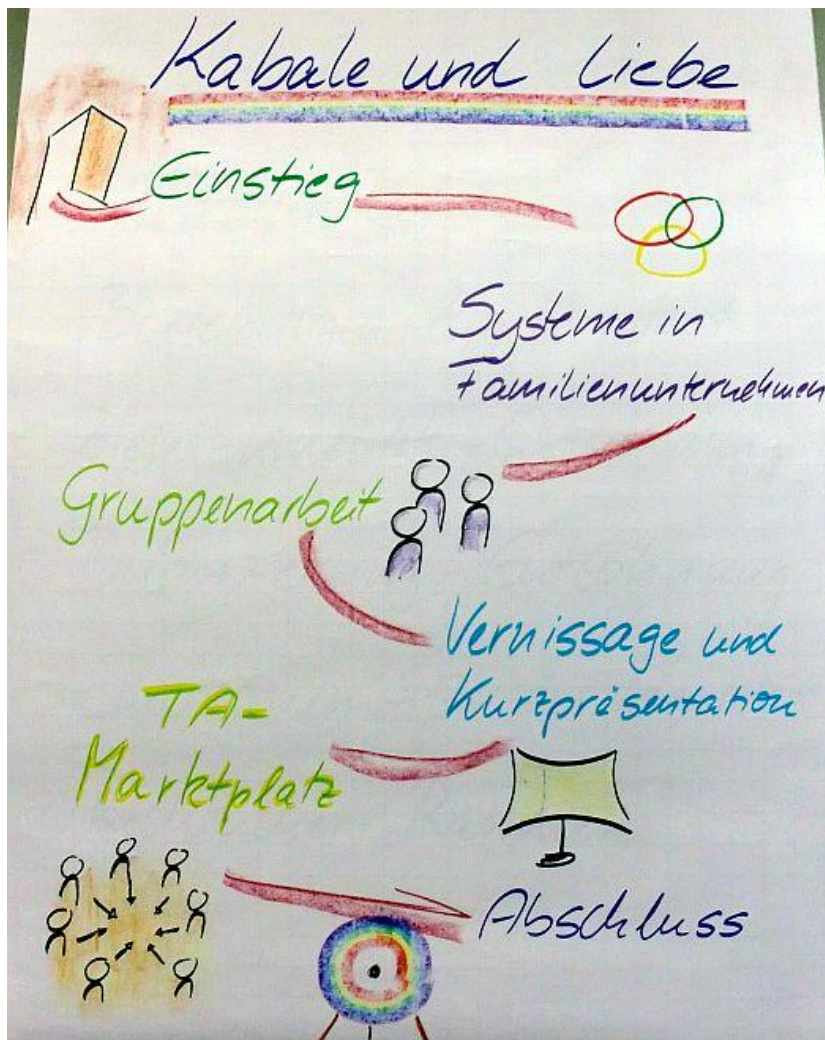 Kabale und Liebe
Einstieg
Systeme in
Familienunternehmen
Gruppenarbeit
Vernissage und
Kurzpräsentation
TA-
Marktplatz
Abschluss